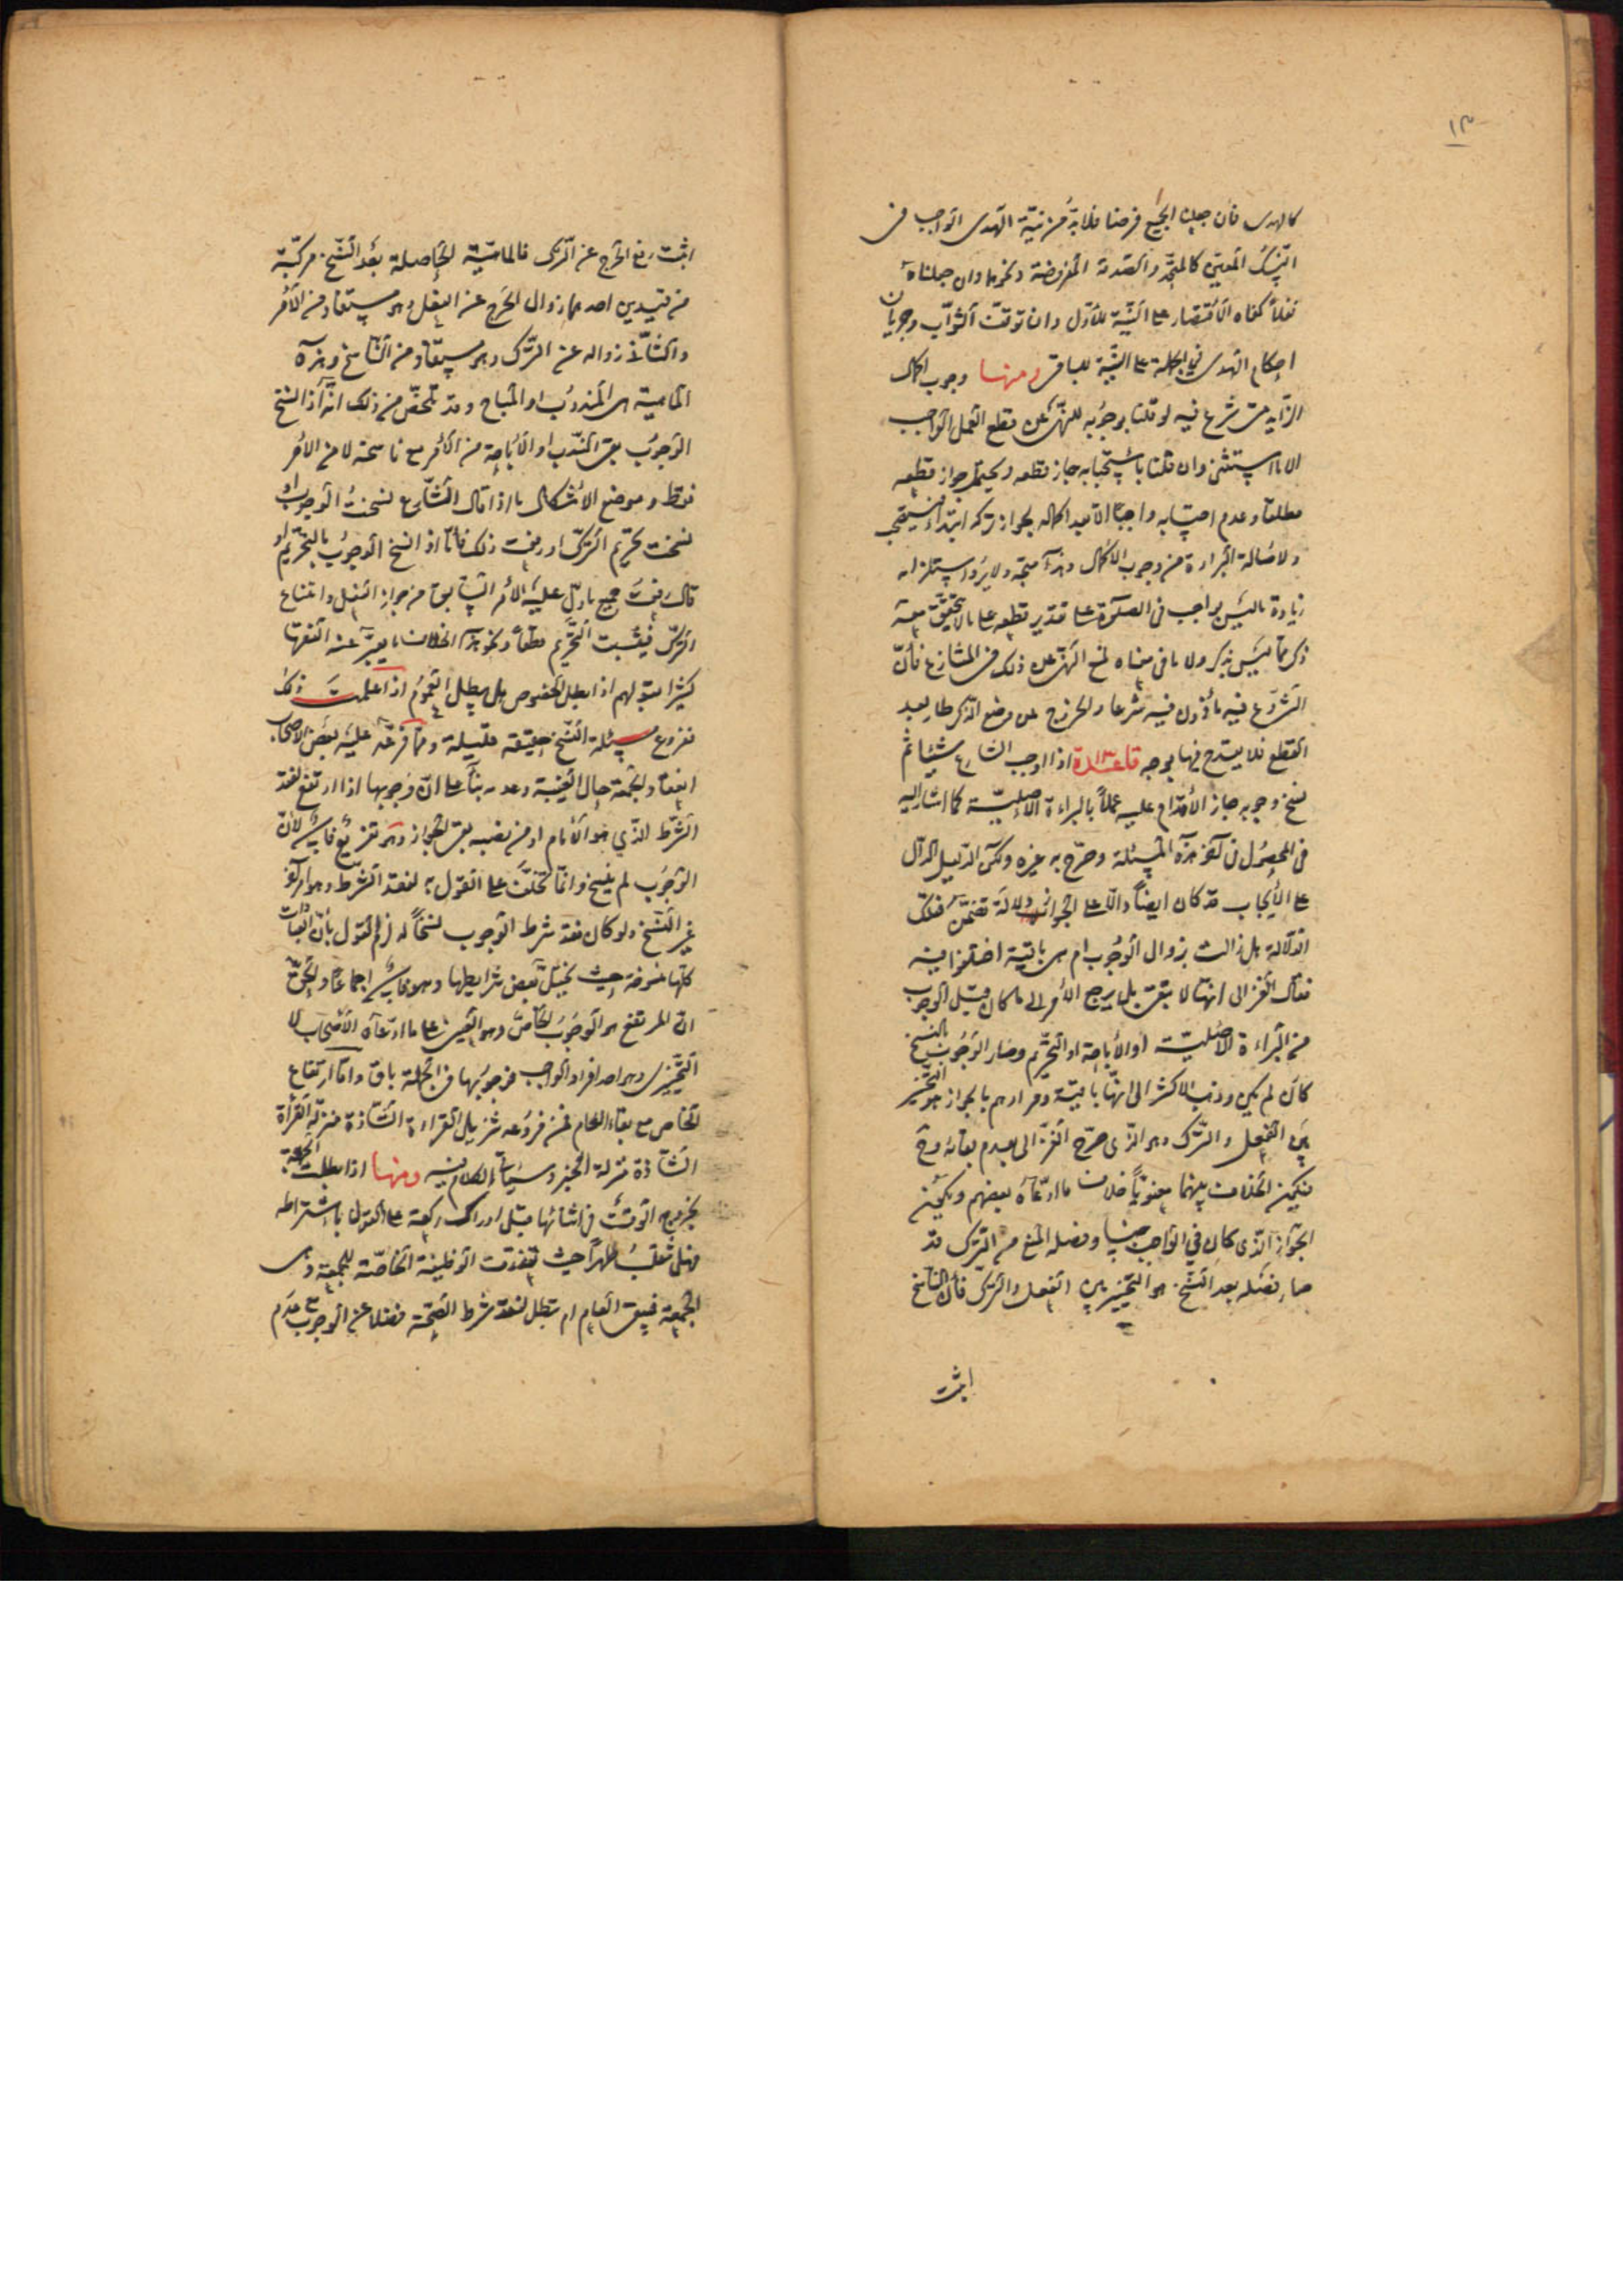 ١٣
كالهدى فان جعلنا الجميع فرضا فلا بد من نية الهدى الواجب فى
النسك المعين كالمتمتع والصدقة المفروضة ونحوها وان جعلناه
نفلا كفاه الاقتصار على النية للأول وان توقف الثواب وجريان
احكام الهدى فى الجملة على النية للباقى ومنها وجوب اكمال
الزايد متى شرع فيه لو قلنا بوجوبه للنهى عن قطع العمل الواجب
الا ما استثنى وان قلنا باستحبابه جاز قطعه ويحتمل جواز قطعه
مطلقا وعدم احتسابه واجبا الا بعد اكماله لجواز تركه ابتداء فيستصحب
ولاصالة البراءة من وجوب الاكمال وهذا متجه ولا يرد استلزامه
زيادة ما ليس بواجب فى الصلوة على تقدير قطعه على ما لا يتحقق معه
ذكر ما ليس بذكر ولا ما فى معناه لمنع النهى عن ذلك فى المتنازع فان
الشروع فيه مأذون فيه شرعا والخروج عن وضع الذكر طار بعد
القطع فلا يقدح فيها بوجه قاعدة ١٣ اذا اوجب الشارع شيئا ثم
نسخ وجوبه جاز الأقدام عليه عملا بالبراءة الاصلية كما اشار اليه
فى المحصول فى آخر هذه المسئلة وصرح به غيره ولكن الدليل الدال
على الأيجاب قد كان ايضا دالا على الجواز دلالة تضمن فتلك
الدلالة هل زالت بزوال الوجوب ام هى باقية اختلفوا فيه
فقال الغزالى انها لا تبقى بل يرجع الأمر الى ما كان قبل الوجوب
من البراءة الاصلية او الأباحة او التحريم وصار الوجوب بالنسخ
كأن لم يكن وذهب الاكثر الى انها باقية ومرادهم بالجواز هو التخيير
بين الفعل والترك وهو الذى صرح الغزالى بعدم بقائه وح
فيكون الخلاف بينهما معنويا خلاف ما ادعاه بعضهم ويكون
الجواز الذى كان فى الواجب جنسا وفصله المنع من الترك قد
صار فصله بعد النسخ هو التخيير بين الفعل والترك فان الناسخ
اثبت
اثبت رفع الحرج عن الترك فالماهية الحاصلة بعد النسخ مركبة
من قيدين احدهما زوال الحرج عن الفعل وهو مستفاد من الأمر
والثانى زواله عن الترك وهو مستفاد من الناسخ وهذه
الماهية هى المندوب او المباح وقد تلخص من ذلك انه اذا نسخ
الوجوب بقى الندب او الأباحة من الأمر مع ناسخه لا من الامر
فقط وموضع الاشكال ما اذا قال الشارع نسخت الوجوب او
نسخت تحريم الترك او رفعت ذلك فأما اذا نسخ الوجوب بالتحريم او
قال رفعت جميع ما دل عليه الأمر السابق من جواز الفعل وامتناع
الترك فيثبت التحريم قطعا ونحو هذا الخلاف ما يعبر عنه الفقها
كثيرا بقولهم اذا بطل الخصوص هل يبطل العموم اذا علمت ذلك
ففروع مسئلة النسخ حقيقة قليلة ومما فرعه عليه بعض الاصحاب
انعقاد الجمعة حال الغيبة وعدمه بناء على ان وجوبها اذا ارتفع لفقد
الشرط الذي هو الأمام او من نصبه بقى الجواز وهو تفريع فاسد لأن
الوجوب لم ينسخ وانما تخلف على القول به لفقد الشرط وهو امر آخر
غير النسخ ولو كان فقد شرط الوجوب نسخا له لزم القول بأن العبادات
كلها منسوخة حيث يختل بعض شرايطها وهو فاسد اجماعا والحق
ان المرتفع هو الوجوب الخاص وهو العينى على ما ادعاه الأصحاب لا
التخييرى وهو احد افراد الواجب فوجوبها فى الجملة باق واما ارتفاع
الخاص مع بقاء العام فمن فروعه تنزيل القراءة الشاذة منزلة القرأة
الشاذة منزلة الخبر وسيأتى الكلام فيه ومنها اذا بطلت الجمعة
بخروج الوقت فى اثنائها قبل ادراك ركعة على القول باشتراطه
فهل تنقلب ظهرا حيث تعذرت الوظيفة الخاصة للجمعة وهى
الجمعة فيبقى العام ام تبطل لفقد شرط الصحة فضلا عن الوجوب مع عدم